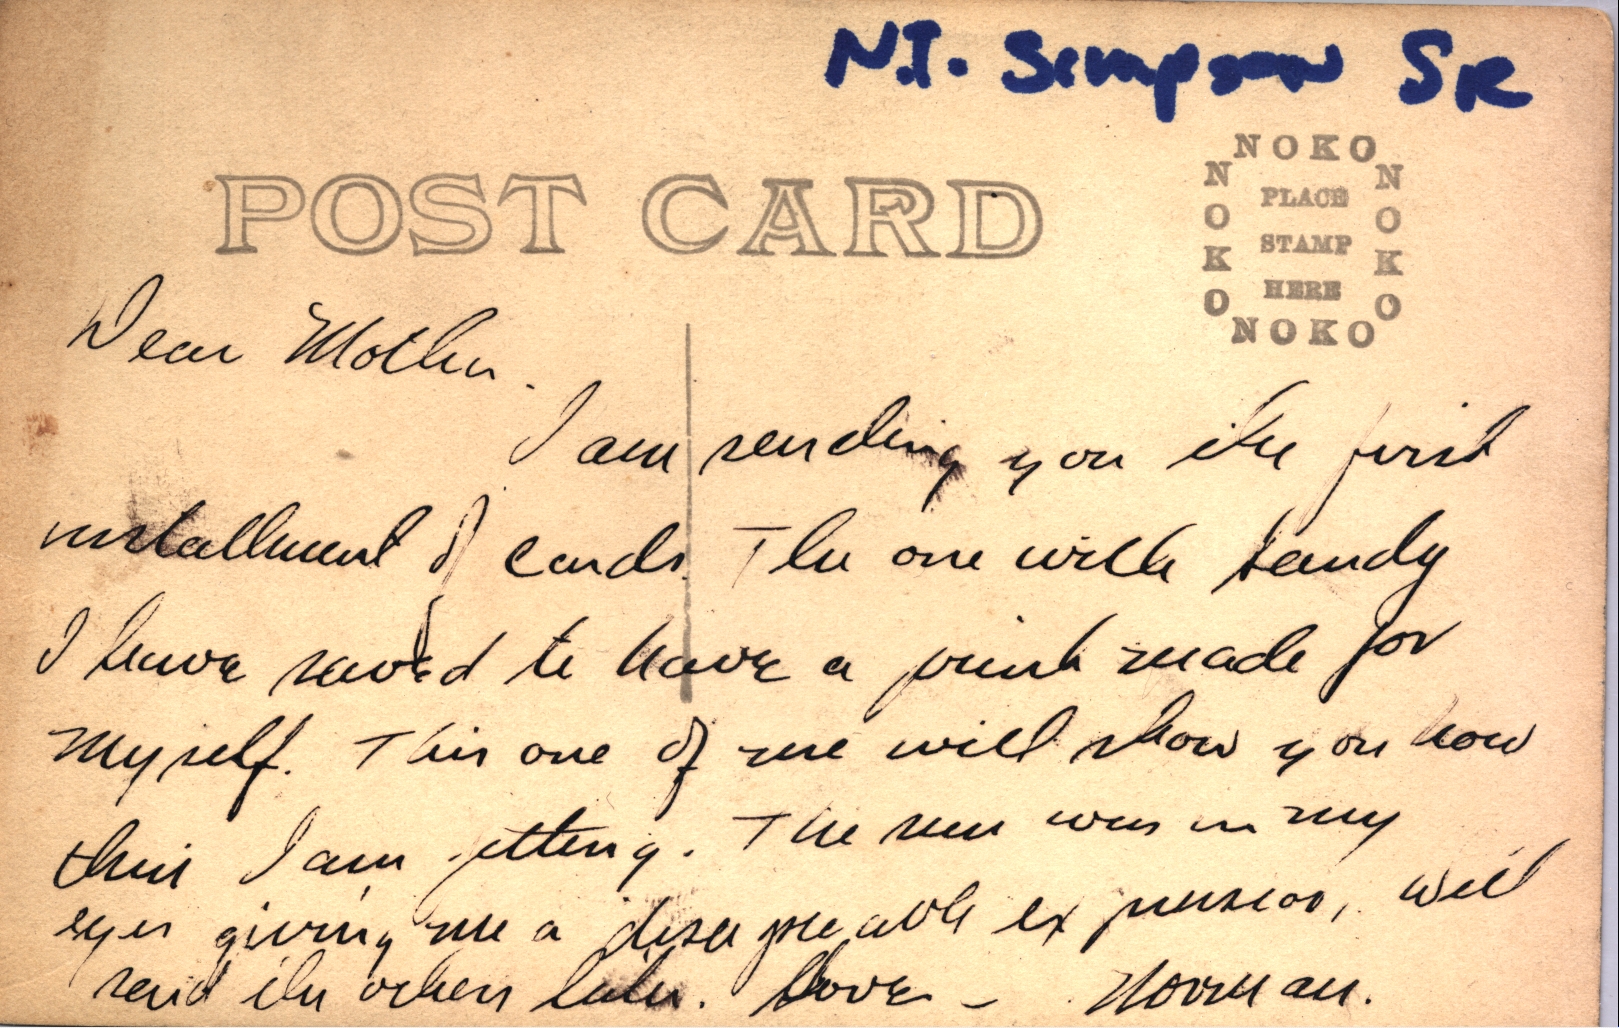 N.T. Simpson SR
POST CARD
NOKO
NOKO
NOKO
NOKO
PLACE
STAMP
HERE
Dear Mother.
I am sending you the first
installment of cards. The one with Sandy
I have saved to have a print made for
myself. This one of me will show you how
thin I am getting. The sun was in my
eyes giving me a disagreeable expression, will
send the others later. Love - Norman.